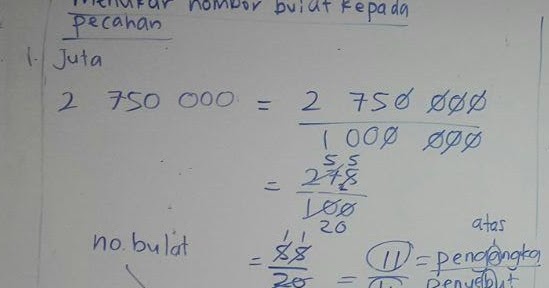 Menukar nombor bulat kepada
pecahan
1. Juta
2 750 000 = 2 750 000
1 000 000
5 5
= 275
100
20
atas
no. bulat
1 1
= 55 = 11 = pengangka
20 penyebut